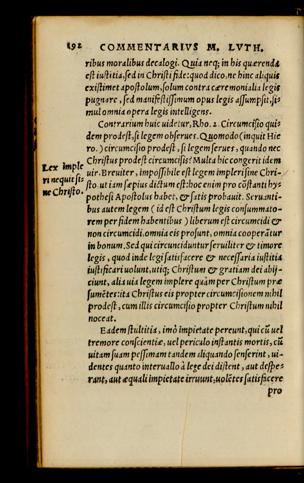 192 COMMENTARIVS M. LVTH.
ribus moralibus decalogi. Quia neq; in his quærenda
est iustitia, sed in Christi fide: quod dico, ne hinc aliquis
existimet apostolum, solum contra cæremonialia legis
pugnare, sed manifestissimum opus legis assumpsit, si-
mul omnia opera legis intelligens.
Contrarium huic uidetur, Rho. 2. Circumcisio qui-
dem prodest, si legem obserues. Quomodo (inquit Hie
ro.) circumcisio prodest, si legem serues, quando nec
Christus prodest circumcisis? Multa hic congerit idem
uir. Breuiter, impossibile est legem impleri sine Chri-
Lex imple
ri nequit si-
ne Christo.
sto. ut iam sæpius dictum est: hoc enim pro cõstanti hy-
pothesi Apostolus habet, & satis probauit. Seruanti-
bus autem legem (id est Christum legis consummato-
rem per fidem habentibus) liberum est circumcidi &
non circumcidi, omnia eis prosunt, omnia cooperãtur
in bonum. Sed qui circunciduntur seruiliter & timore
legis, quod inde legi satisfacere & necessaria iustitia
iustificari uolunt, utiq; Christum & gratiam dei abij-
ciunt, alia uia legem implere quàm per Christum præ
sumẽtes: ita Christus eis propter circumcisionem nihil
prodest, cum illis circumcisio propter Christum nihil
noceat.
Eadem stultitia, imò impietate pereunt, qui cũ uel
tremore conscientiæ, uel periculo instantis mortis, cũ
uitam suam pessimam tandem aliquando senserint, ui-
dentes quanto interuallo à lege dei distent, aut despe-
rant, aut æquali impietate irruunt, uolẽtes satisfacere
pro